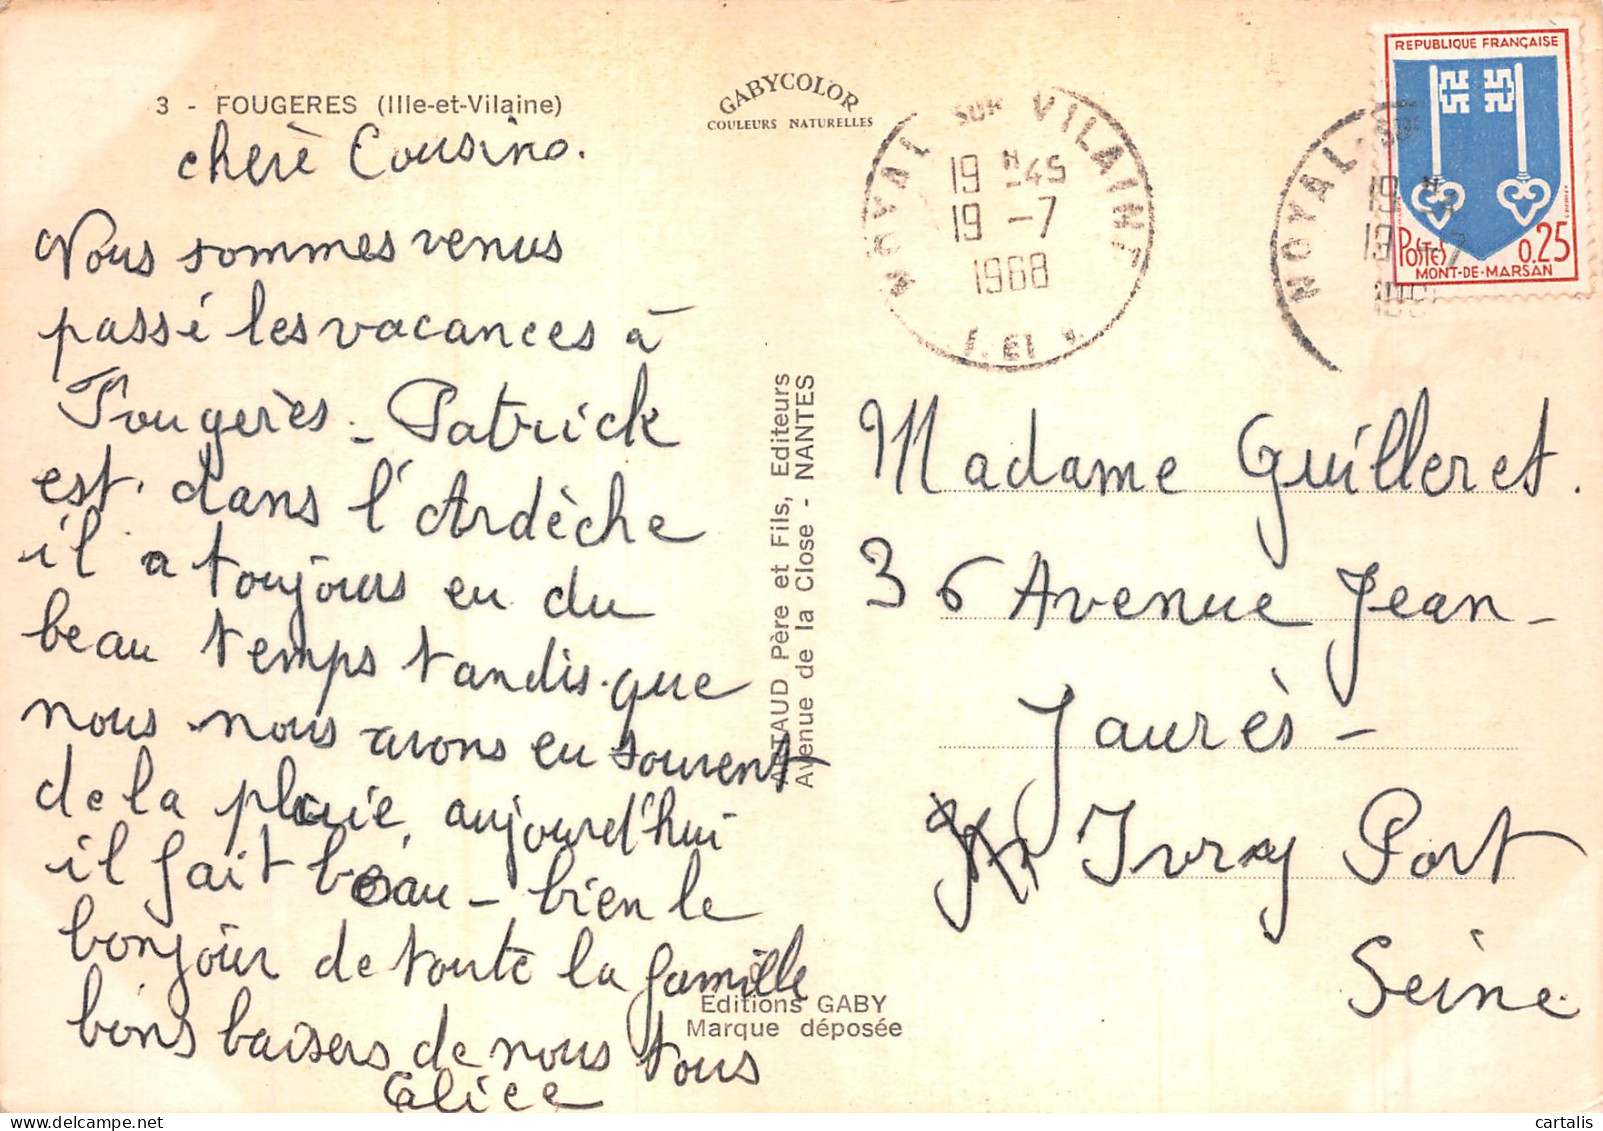 3 - FOUGERES (Ille-et-Vilaine)
GABYCOLOR
COULEURS NATURELLES
cherè Cousine.
Nous sommes venus
passé les vacances à
Fougerès - Patrick
est dans l'Ardèche
il a toujours eu du
beau temps tandis que
nous nous avons eu souvent
de la pluie, aujourd'hui
il fait beau - bien le
bonjour de toute la famille
bons baisers de nous tous
Alice
ARTAUD Père et Fils, Editeurs
Avenue de la Close - NANTES
Editions GABY
Marque déposée
NOYAL SUR VILAINE
19 H -45
19 -7
1968
I. ET V.
REPUBLIQUE FRANÇAISE
POSTES 0.25
MONT-DE-MARSAN
NOYAL SUR
19 H
19 -7
Madame Guilleret.
36 Avenue Jean-
Jaurès -
Ivry Port
Seine
cartalis
delcampe.net